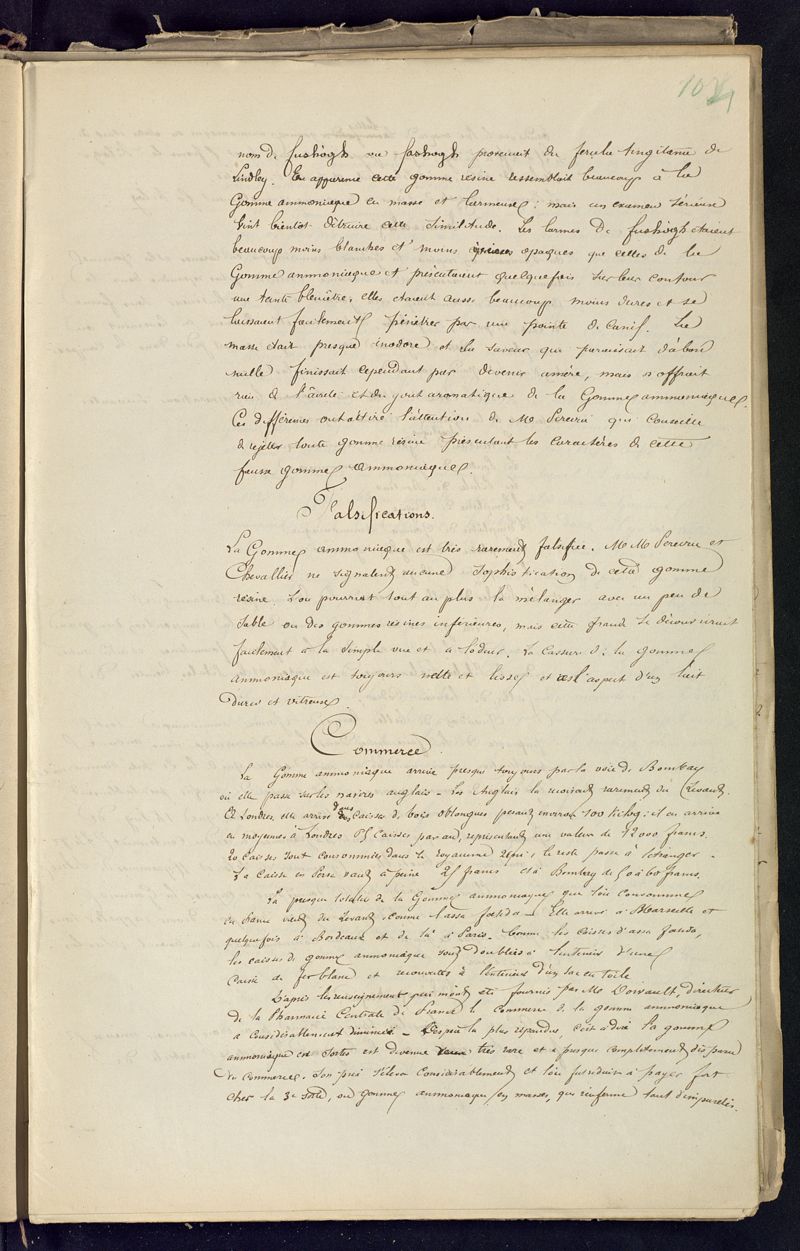 104
nom de fushògh ou fashogh provenait du ferula tingitana de
Lindley. En apparence cette gomme résine ressemblait beaucoup à la
Gomme ammoniaque en masse et larmeuse; mais un examen sérieux
vint bientôt détruire cette similitude. Les larmes de fushògh étaient
beaucoup moins blanches et moins opaques que celles de la
Gomme ammoniaque et présentaient quelquefois sur leur contour
une teinte bleuâtre, elles étaient aussi beaucoup moins dures et se
laissaient facilement pénétrer par une pointe de canif. La
masse était presque inodore et la saveur qui paraissait d'abord
nulle finissait cependant par devenir amère, mais n'offrait
rien de l'âcreté et du gout aromatique de la Gomme ammoniaque.
Ces différences ont attiré l'attention de Mr Pereira qui conseille
de rejeter toute gomme résine présentant les caractères de cette
fausse gomme ammoniaque.
Falsifications.
La Gomme ammoniaque est très rarement falsifiée. M. M. Pereira et
Chevallier ne signalent aucune sophistication de cette gomme
résine. L'on pourrait tout au plus la mélanger avec un peu de
sable ou des gommes résines inférieures, mais cette fraude se découvrirait
facilement à la simple vue et à l'odeur. La cassure de la gomme
ammoniaque est toujours nette et lisse et a l'aspect d'un lait
durci et vitreux.
Commerce.
La Gomme ammoniaque arrive presque toujours par la voie de Bombay
où elle passe sur les navires anglais - Les Anglais la reçoivent rarement du Levant.
A Londres elle arrive dans des caisses de bois oblongues pesant environ 100 kilog; il en arrive
en moyenne à Londres 75 caisses par an, représentant une valeur de 12000 francs.
20 caisses sont consommées dans le royaume uni; le reste passe à l'étranger -
La caisse en Perse vaut à peine 25 francs et à Bombay de 50 à 60 francs.
La presque totalité de la Gomme ammoniaque que l'on consomme
en France vient du Levant, comme l'assa foetida - Elle arrive à Marseille et
quelquefois à Bordeaux et de là à Paris. Comme les caisses d'assa foetida,
les caisses de gomme ammoniaque sont doublées à l'intérieur d'une
caisse de fer blanc et recouvertes à l'extérieur d'un sac en toile.
D'après les renseignements qui m'ont été fournis par Mr Dorvault, directeur
de la Pharmacie Centrale de France le commerce de la gomme ammoniaque
a considérablement diminué - L'espèce la plus répandue, c'est à dire la gomme
ammoniaque en sortes est devenue très rare et a presque complètement disparu
du commerce. Son prix s'éleva considérablement et l'on fut réduit à payer fort
cher la 3e sorte, ou gomme ammoniaque en masses, qui renferme tant d'impuretés.